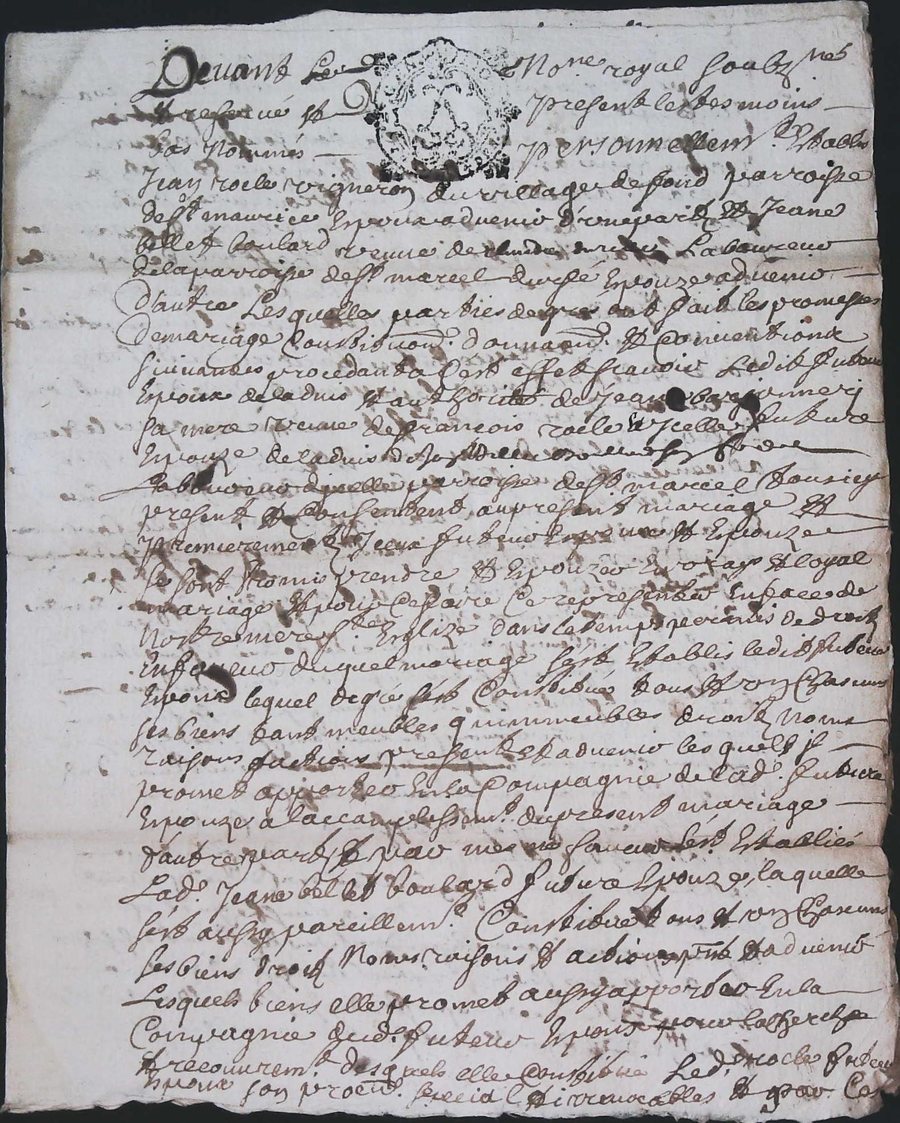 Devant Le No.re royal soubz.nés
et reservé et presents les tesmoins
bas Nommés personnellem.t Establis
Jean rocle vigneron du village de fond parroisse
de S.t maurice Epoux advenir d'une part Et Jeane
bellet boulard veuve de Laboureur
de la parroise de S.t marcel Epouze advenir
d'autre Lesquelles parties de gré ont fait les promesses
de mariage Constitu.on donna.on Et Conventions
suivantes procedant a Cest effet sçavoir Ledit futeur
Epoux de ladvis Et authorité de Jeane
sa mere veuve de françois rocle Et Jcelle future
Epouze de ladvis
Laboureur de parroisse de S.t marcel
present Et Consentent au present mariage Et
premierement Jceux futeur Epoux Et Epouze
se sont promis prendre Et Epouzer En vray Et loyal
mariage Et pour Ce faire Ce representer En face de
Nostre mere S.te Eglize dans le temps permis de droit
En faveur duquel mariage s'est Establis ledit futeur
Epoux lequel de gré s'est Constitué tous Et un Chascuns
ses biens tant meubles qu'immeubles droits Noms
raisons factions presents Et advenir lesquels il
promet apporter En la Compagnie de lad.e future
Epouze a l'accomplissem.t du present mariage
d'autre part Et par mesme faveur s'est Establie
Lad.e Jeane bellet boulard future Epouze, laquelle
s'est aussy pareillem.t Constitué tous Et un Chascuns
ses biens droits Noms raisons Et actions Et advenir
Lesquels biens elle promet aussy apporter En la
Compagnie dud.t futeur Epoux pour la
Et recouvrem.t desquels elle Constitué Led.t rocle futeur
Epoux son procu.r special Et irrevocable Et par Ces